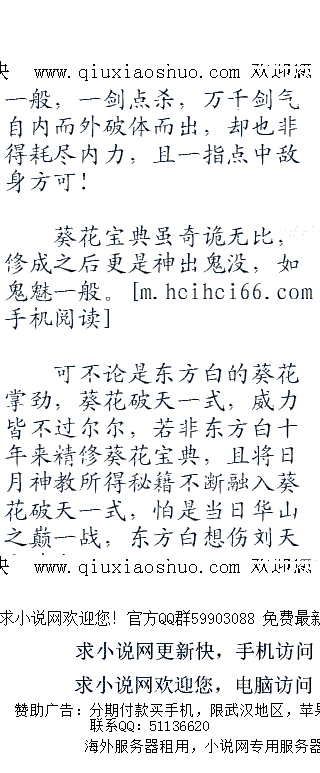 www.qiuxiaoshuo.com 欢迎您
一般，一剑点杀，万千剑气
自内而外破体而出，却也非
得耗尽内力，且一指点中敌
身方可！
葵花宝典虽奇诡无比，
修成之后更是神出鬼没，如
鬼魅一般。[m.hcihci66.com
手机阅读]
可不论是东方白的葵花
掌劲，葵花破天一式，威力
皆不过尔尔，若非东方白十
年来精修葵花宝典，且将日
月神教所得秘籍不断融入葵
花破天一式，怕是当日华山
之巅一战，东方白想伤刘天
www.qiuxiaoshuo.com 欢迎您
求小说网欢迎您！官方QQ群59903088 免费最新
求小说网更新快，手机访问
求小说网欢迎您，电脑访问
赞助广告：分期付款买手机，限武汉地区，苹果
联系QQ：51136620
海外服务器租用，小说网专用服务器